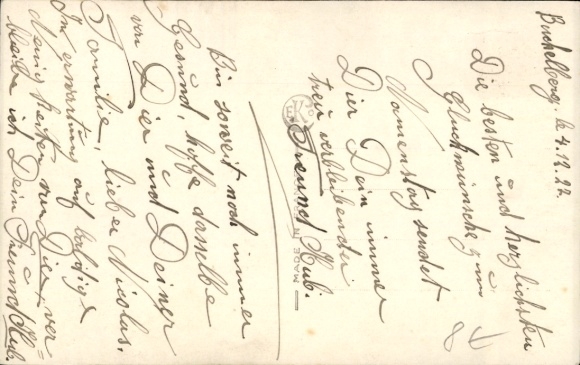 Buchelberg, le 4.12.22.
Die besten und herzlichsten
Glückwünsche zum
Namenstag sendet
Dir Dein immer
treu verbleibender
Freund Hub.
Bin soweit noch immer
Gesund, hoffe dasselbe
von Dir und Deiner
Familie, lieber Nicolas.
In erwartung auf baldige
Neuigkeiten von Dir ver=
bleibe ich Dein Freund Hub.
MADE IN